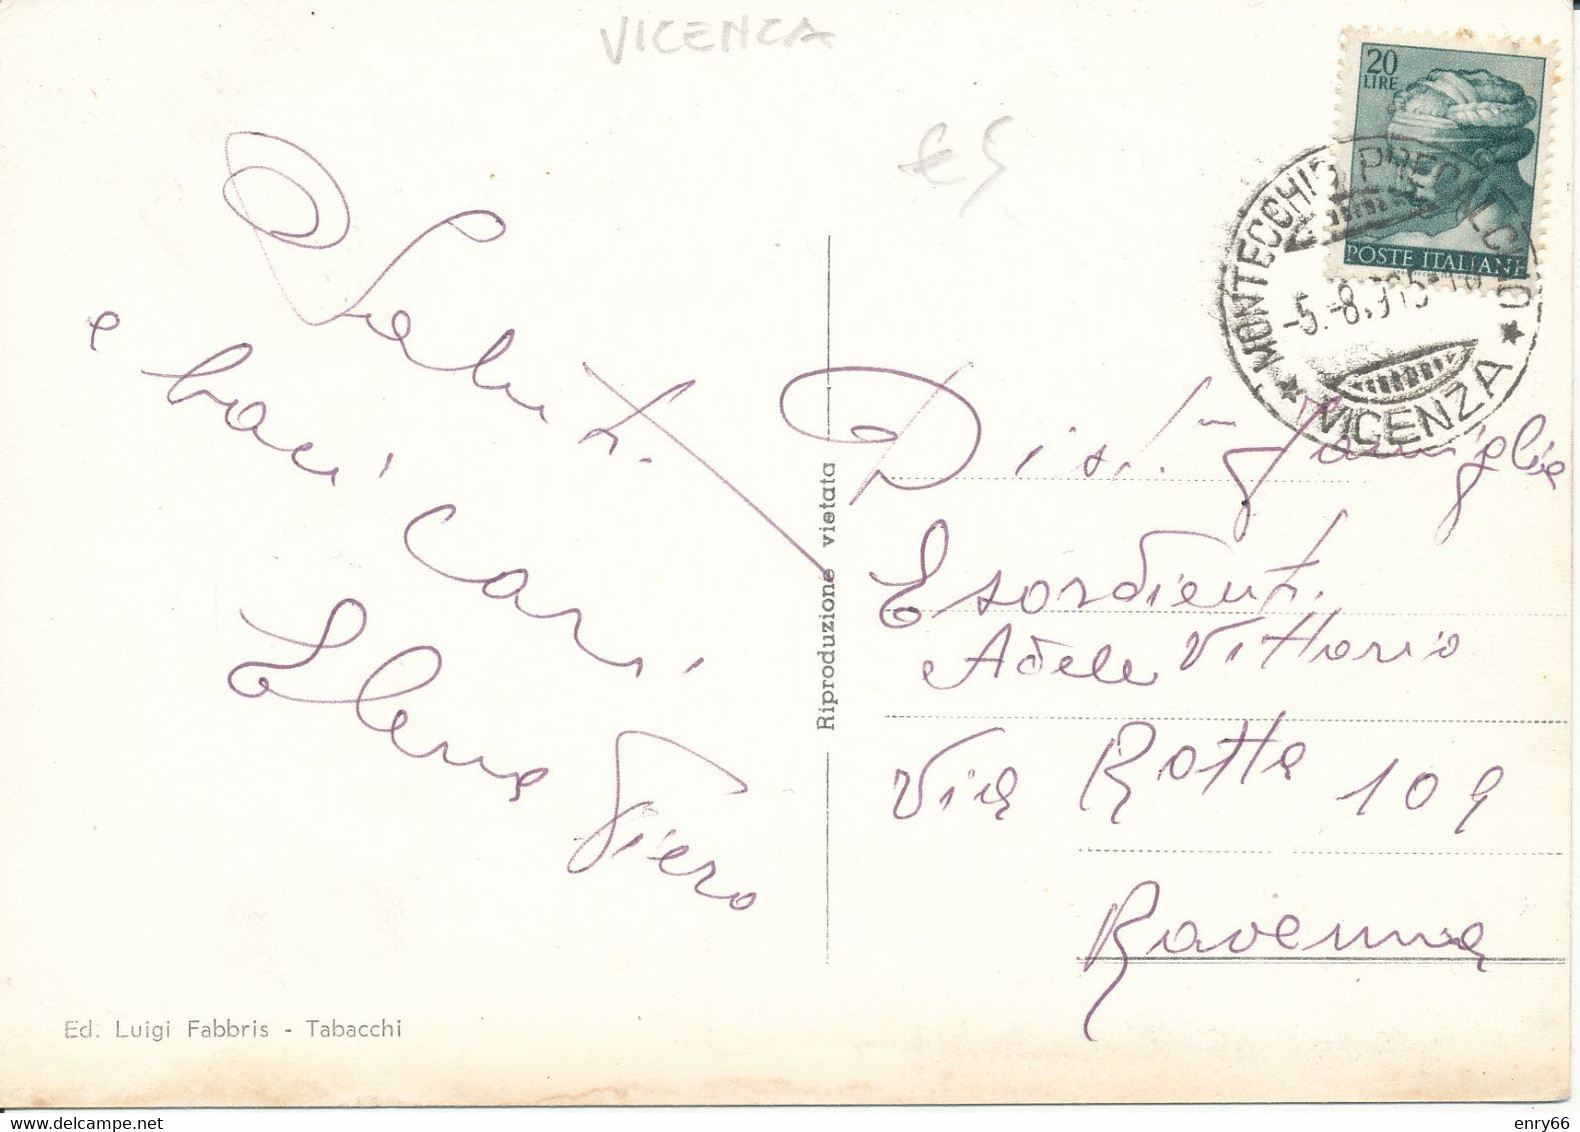 VICENZA
€ 5
20
LIRE
POSTE ITALIANE
MONTECCHIO PRECALCINO
* VICENZA *
Saluti
e baci cari
Elena Piero
Riproduzione vietata
Dist. Famiglia
Esordienti
Adele Vittorio
Via Rotta 109
Ravenna
Ed. Luigi Fabbris - Tabacchi
delcampe.net
enry66